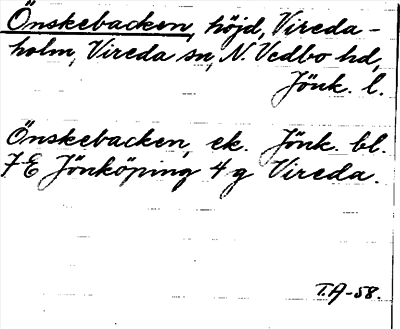 Önskebacken, höjd, Vireda-
holm, Vireda sn, N. Vedbo hd,
Jönk. l.
Önskebacken, ek. Jönk. bl.
7E Jönköping 4g Vireda.
T.A-58.